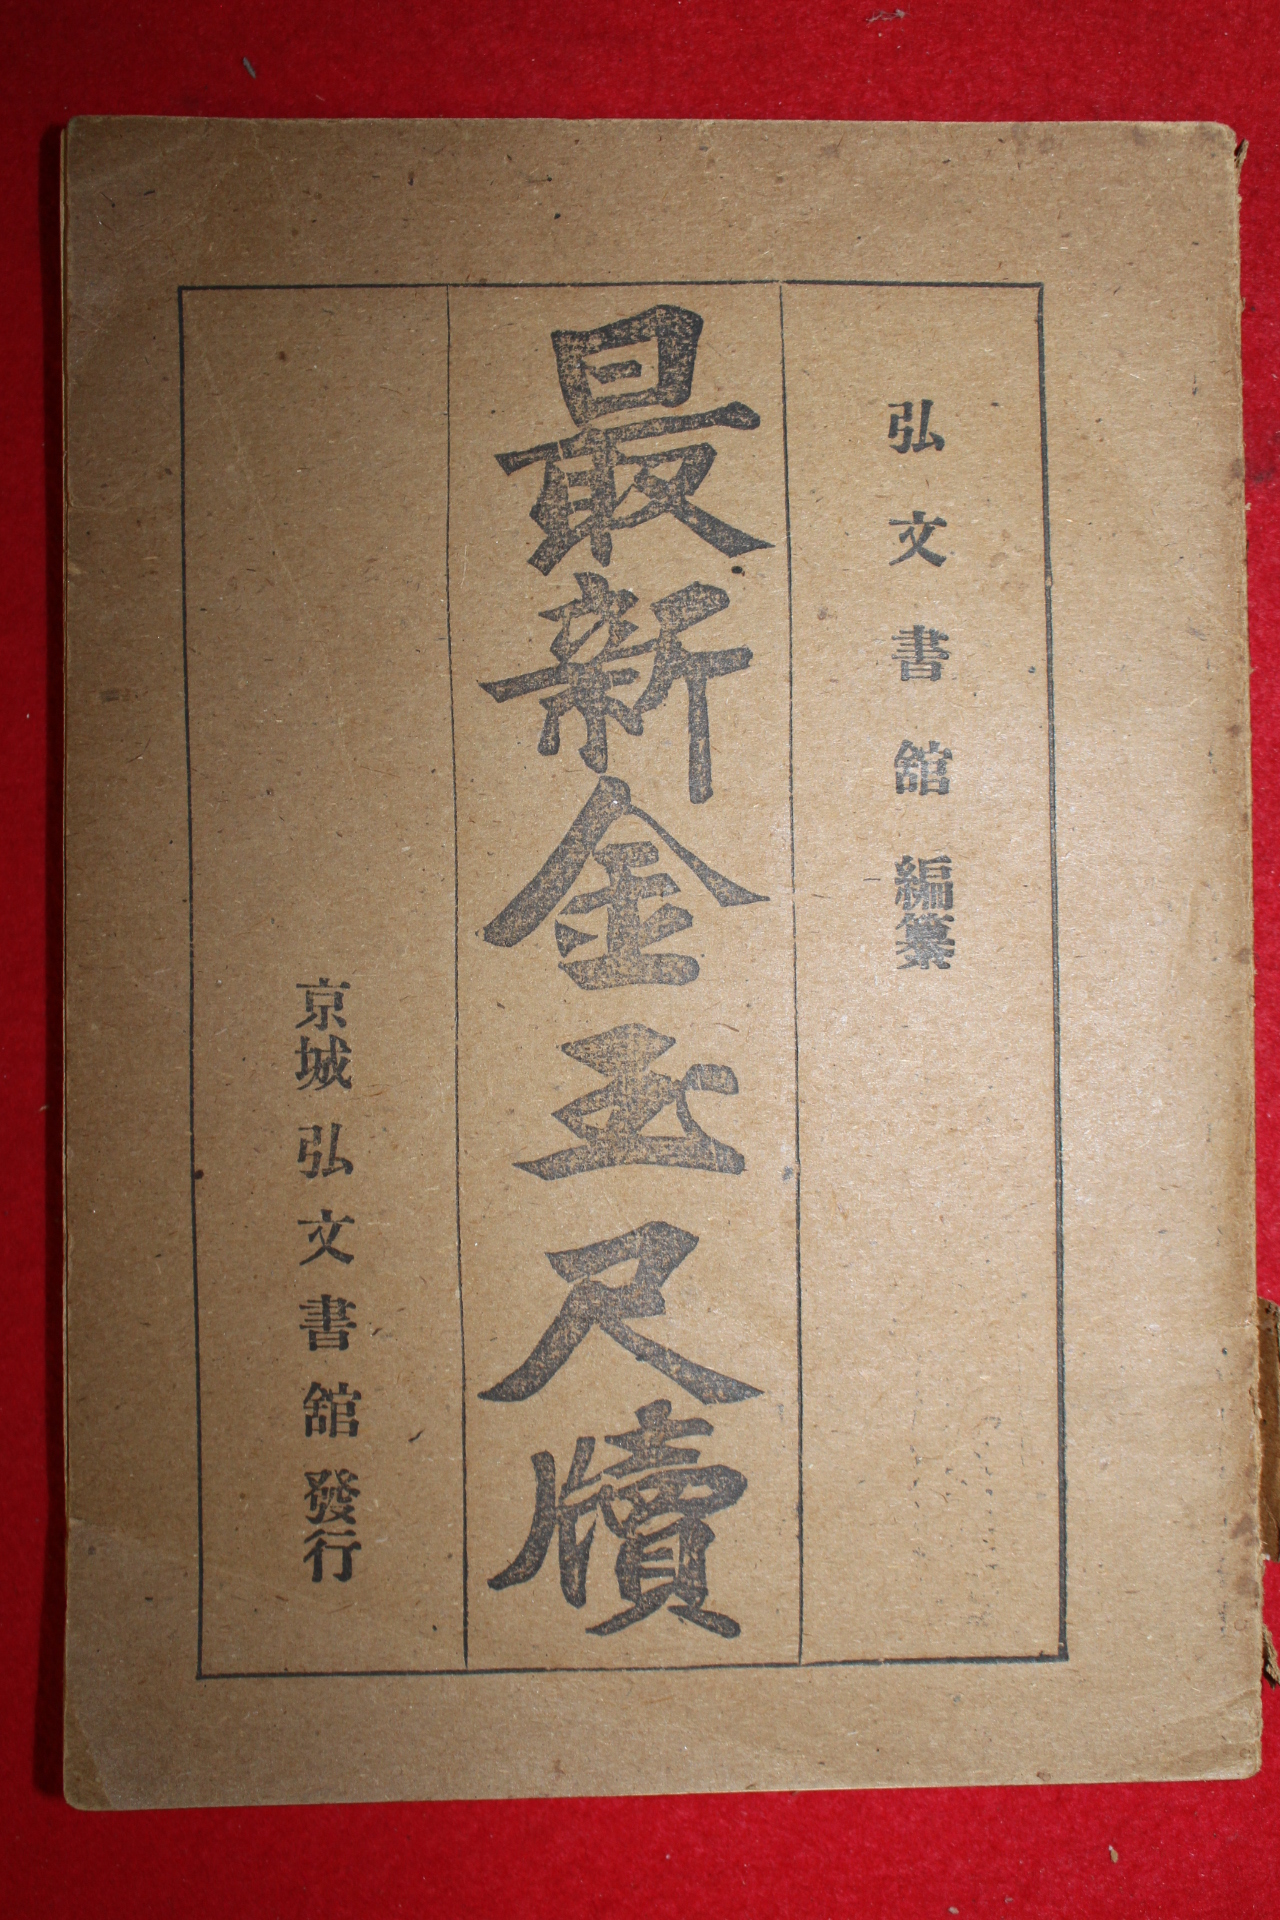 弘文書舘編纂
最新金玉尺牘
京城弘文書舘發行